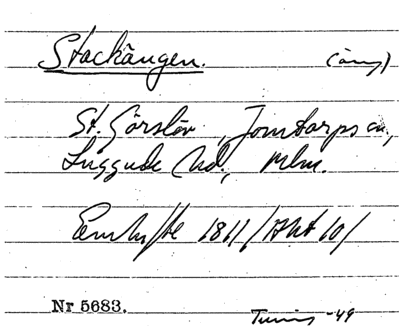 Stackängen. (äng)
St. Görslöv, Jomtarps sn,
Luggude hd., Mlm.
Enskifte 1811 /Akt 10/
Nr 5683.
-49